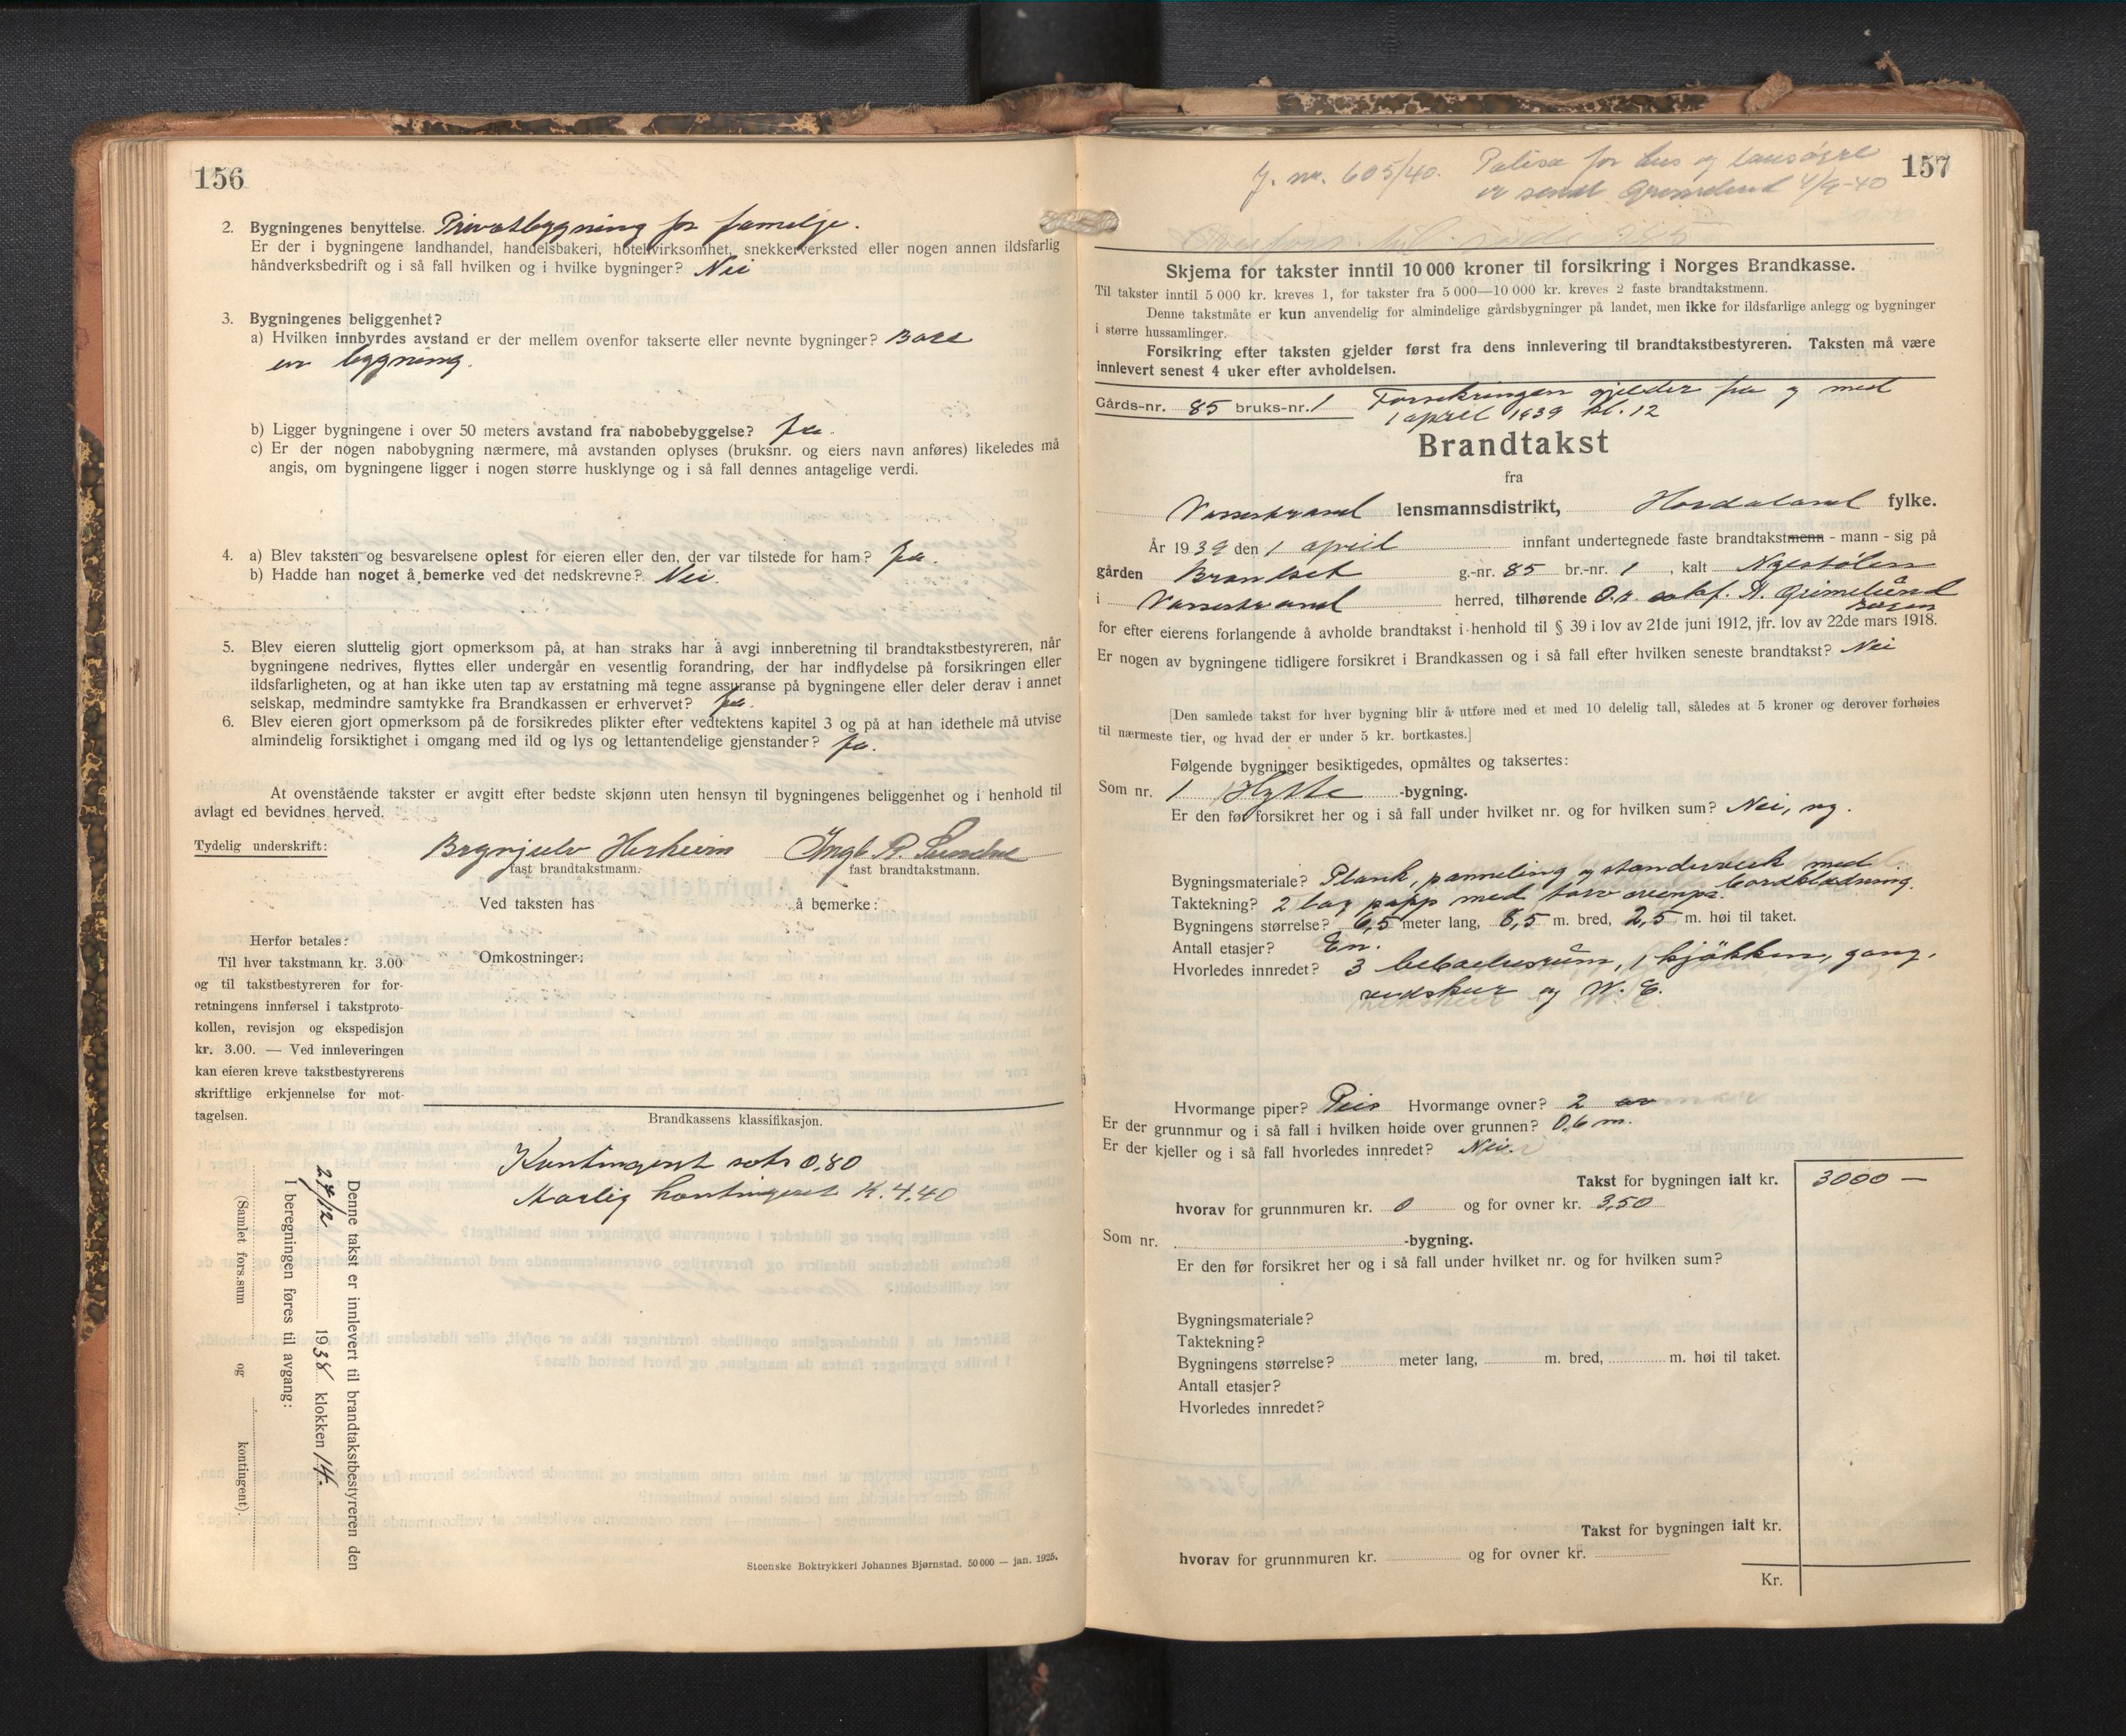 156
2. Bygningenes benyttelse. Privatbygning for familje.
Er der i bygningene landhandel, handelsbakeri, hotelvirksomhet, snekkerverksted eller nogen annen ildsfarlig
håndverksbedrift og i så fall hvilken og i hvilke bygninger? Nei
3. Bygningenes beliggenhet?
a) Hvilken innbyrdes avstand er der mellem ovenfor takserte eller nevnte bygninger? Bare
en bygning.
b) Ligger bygningene i over 50 meters avstand fra nabobebyggelse? Ja.
c) Er der nogen nabobygning nærmere, må avstanden oplyses (bruksnr. og eiers navn anføres) likeledes må
angis, om bygningene ligger i nogen større husklynge og i så fall dennes antagelige verdi.
4. a) Blev taksten og besvarelsene oplest for eieren eller den, der var tilstede for ham? Ja.
b) Hadde han noget å bemerke ved det nedskrevne? Nei.
5. Blev eieren sluttelig gjort opmerksom på, at han straks har å avgi innberetning til brandtakstbestyreren, når
bygningene nedrives, flyttes eller undergår en vesentlig forandring, der har indflydelse på forsikringen eller
ildsfarligheten, og at han ikke uten tap av erstatning må tegne assuranse på bygningene eller deler derav i annet
selskap, medmindre samtykke fra Brandkassen er erhvervet? Ja.
6. Blev eieren gjort opmerksom på de forsikredes plikter efter vedtektens kapitel 3 og på at han idethele må utvise
almindelig forsiktighet i omgang med ild og lys og lettantendelige gjenstander? Ja.
At ovenstående takster er avgitt efter bedste skjønn uten hensyn til bygningenes beliggenhet og i henhold til
avlagt ed bevidnes herved.
Tydelig underskrift: Brynjulv Herheim Ingb. R.
fast brandtakstmann. fast brandtakstmann.
Ved taksten has å bemerke:
Omkostninger:
Herfor betales:
Til hver takstmann kr. 3.00
og til takstbestyreren for for-
retningens innførsel i takstproto-
kollen, revisjon og ekspedisjon
kr. 3.00. — Ved innleveringen
kan eieren kreve takstbestyrerens
skriftlige erkjennelse for mot-
tagelsen.
Brandkassens klassifikasjon.
Kontingent sats 0,80
Aarlig kontingent K. 4.40
Denne takst er innlevert til brandtakstbestyreren den
27/12 1938 klokken 14.
I beregningen føres til avgang:
(Samlet fors.sum og kontingent).
Steenske Boktrykkeri Johannes Bjørnstad. 50 000 — jan. 1925.
157
J. nr. 605/40. Polise for hus og lausøyre
er sendt Grimelund 4/9-40
Skjema for takster inntil 10 000 kroner til forsikring i Norges Brandkasse.
Til takster inntil 5 000 kr. kreves 1, for takster fra 5 000—10 000 kr. kreves 2 faste brandtakstmenn.
Denne takstmåte er kun anvendelig for almindelige gårdsbygninger på landet, men ikke for ildsfarlige anlegg og bygninger
i større hussamlinger.
Forsikring efter taksten gjelder først fra dens innlevering til brandtakstbestyreren. Taksten må være
innlevert senest 4 uker efter avholdelsen.
Gårds-nr. 85 bruks-nr. 1 Forsekringen gjelder fra og med
1 april 1939 kl. 12
Brandtakst
fra
Vossestrand lensmannsdistrikt, Hordaland fylke.
År 1939 den 1 april innfant undertegnede faste brandtakstmenn - mann - sig på
gården Brandset g.-nr. 85 br.-nr. 1, kalt Nyestølen
i Vossestrand herred, tilhørende O.r. sakf. A. Grimelund
Bergen
for efter eierens forlangende å avholde brandtakst i henhold til § 39 i lov av 21de juni 1912, jfr. lov av 22de mars 1918.
Er nogen av bygningene tidligere forsikret i Brandkassen og i så fall efter hvilken seneste brandtakst? Nei
[Den samlede takst for hver bygning blir å utføre med et med 10 delelig tall, således at 5 kroner og derover forhøies
til nærmeste tier, og hvad der er under 5 kr. bortkastes.]
Følgende bygninger besiktigedes, opmåltes og taksertes:
Som nr. 1 Hytte -bygning.
Er den før forsikret her og i så fall under hvilket nr. og for hvilken sum? Nei, ny.
Bygningsmateriale? Plank, panneling og standerverk med
bordklædning.
Taktekning? 2 lag papp med torv ovenpå.
Bygningens størrelse? 6,5 meter lang, 8,5 m. bred, 2,5 m. høi til taket.
Antall etasjer? En.
Hvorledes innredet? 3 beboelsesrum, 1 kjøkken, gang,
vedskur og W. C.
Hvormange piper? Peis Hvormange ovner? 2
Er der grunnmur og i så fall i hvilken høide over grunnen? 0,6 m.
Er der kjeller og i så fall hvorledes innredet? Nei.
Takst for bygningen ialt kr. 3000 —
hvorav for grunnmuren kr. 0 og for ovner kr. 350
Som nr. -bygning.
Er den før forsikret her og i så fall under hvilket nr. og for hvilken sum?
Bygningsmateriale?
Taktekning?
Bygningens størrelse? meter lang, m. bred, m. høi til taket.
Antall etasjer?
Hvorledes innredet?
Takst for bygningen ialt kr.
hvorav for grunnmuren kr. og for ovner kr.
Kr.